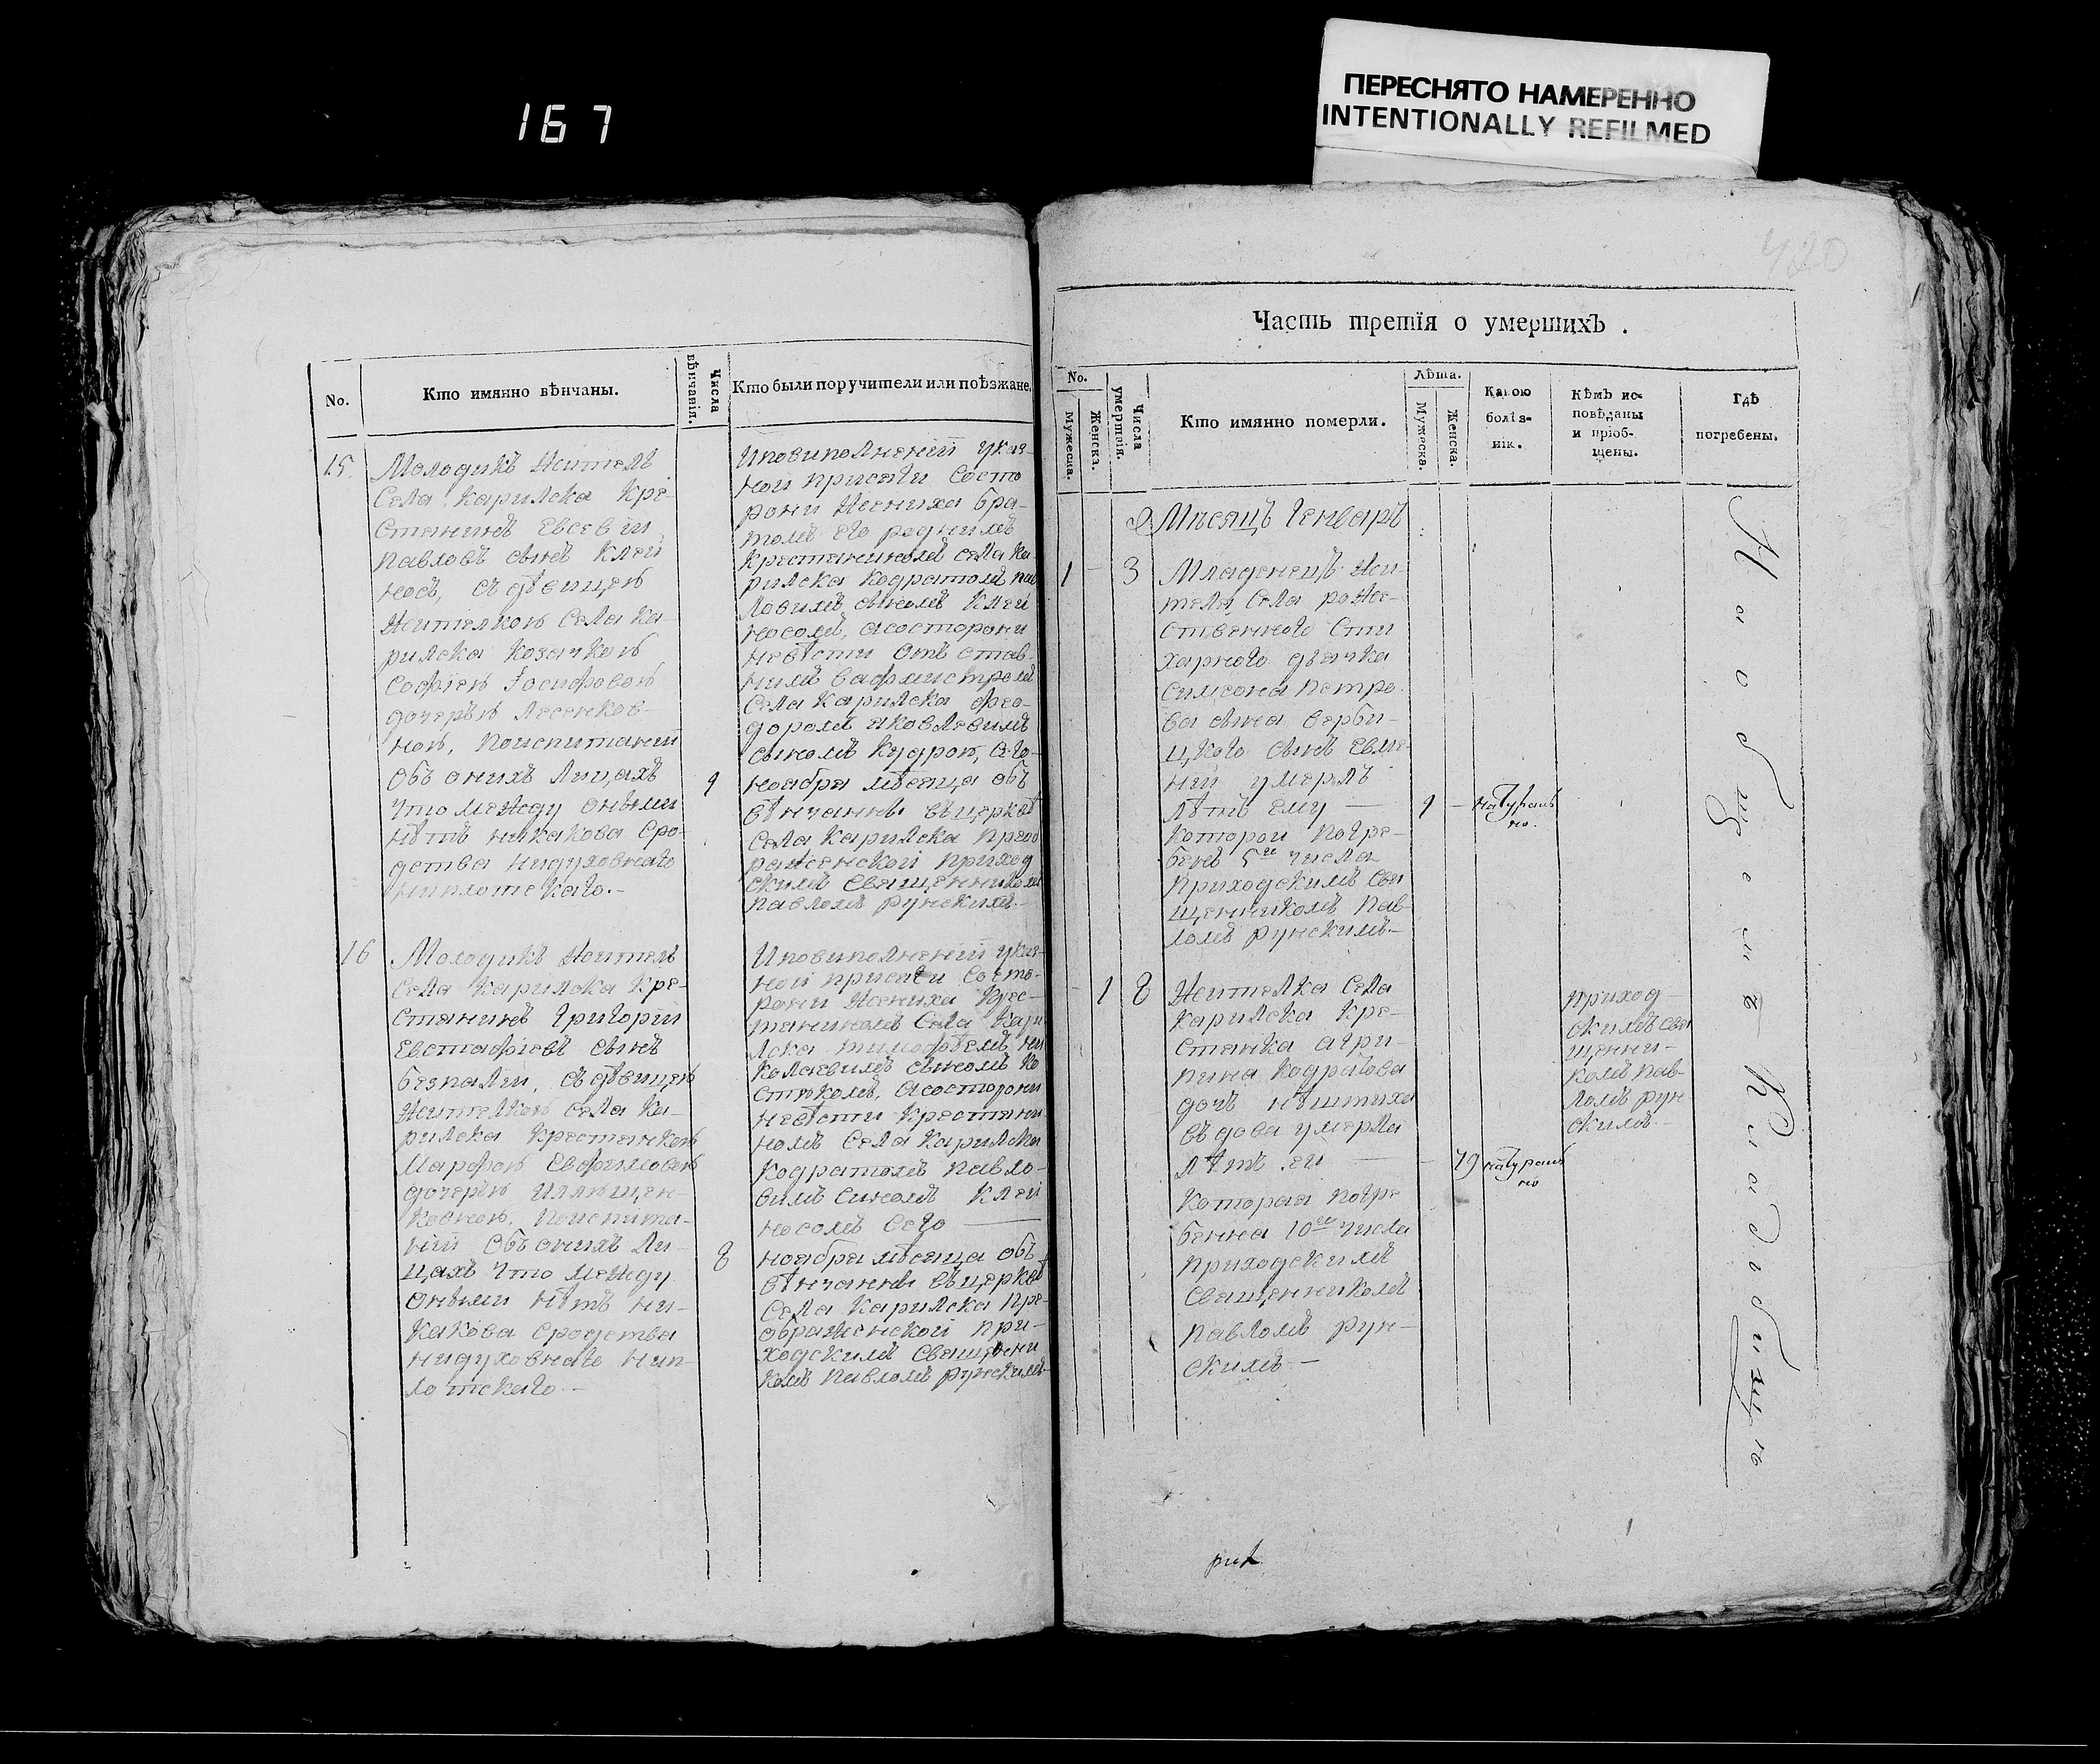 ПЕРЕСНЯТО НАМЕРЕННО
INTENTIONALLY REFILMED
167
420
No.
Кто имянно вѣнчаны.
Числа вѣнчанія.
Кто были поручители или поѣзжане.
15
Молодикъ житель
Села Карилска Кре-
стянинъ Евсевїи
Павловъ сынъ Клеи
носъ, съ дѣвицею
жителкою Села Ка-
рилска козачкою
Софїею Іосифовою
дочерью Лесенков-
ною, поиспитанїи
объ онихъ лицахъ
что между оными
нѣтъ никакова сро-
дства нидуховнаго
ниплотскаго.-
9
Иповиполненїи указ-
нои присяги Состо
рони жениха бра-
томъ его роднимъ
Крестяниномъ села Ка
рилска Кодратомъ Пав
ловимъ сыномъ Клеи
носомъ, асосторони
невѣсти отъ став-
нимъ вафмистромъ
Села Карилска Фео-
доромъ Яковлевимъ
сыномъ Кудрою, Сего-
ноября мѣсяца объ
вѣнчанны въ церквѣ
Села Карилска Преоб
раженской приход
скимъ Священникомъ
Павломъ Рунскимъ.-
16
Молодикъ житель
Села Карилска Кре-
стянинъ Григорїи
Евстафіевъ сынъ
Безпалїи, съ дѣвицею
жителкою Села Ка-
рилска Крестянкою
Марфою Евфимовою
дочерью Иллющен-
ковною, поиспита-
нїи объ онихъ ли-
цахъ что между
оными нѣтъ ни-
какова сродства
нидуховнаго нип-
лотскаго.-
8
Иповиполненїи указ-
нои присяги Состо-
рони жениха Крес-
тяниномъ Села Кари
лска Тимофѣемъ Ни
колаевимъ сыномъ Ко
стюкомъ, асосторони
невѣсти Крестяни
номъ Села Карилска
Кодратомъ Павло-
вимъ синомъ Клеи
носомъ Сего
ноября мѣсяца объ
вѣнчанны въ церквѣ
Села Карилска Пре-
ображенской при-
ходскимъ Священни
комъ Павломъ Рунскимъ
Часть третїя о умершихъ.
No.
Мужеска.
Женска.
Числа умертвія.
Кто имянно померли.
Лѣта.
Мужеска.
Женска.
Какою
болѣз-
нїю.
Кѣмъ ис-
повѣданы
и прїоб-
щены.
Гдѣ
погребены.
Мѣсяцъ Генварь
1 - 3
Младенецъ жи-
теля Села Роже-
ственного Сти
харного дьячка
Симеона Петро
ва сына Верби-
цкого сынъ Евме-
нїй умерлъ
лѣтъ ему —
1 -
натураль
но.
которой погре-
бенъ 5го числа
Приходскимъ Свя
щенникомъ Пав
ломъ Рунскимъ.-
- 1 8
Жителка Села
Карилска Кре-
стянка Агри-
пина Кодратова
дочъ
въдова умерла
лѣтъ ей —
- 79
натураль
но
Которая погре
бенна 10го числа
приходскимъ
Священникомъ
Павломъ Рун-
скимъ.-
приход-
скимъ свя
щенни-
комъ Пав-
ломъ Рун
скимъ.-
На общемъ Кладбищѣ